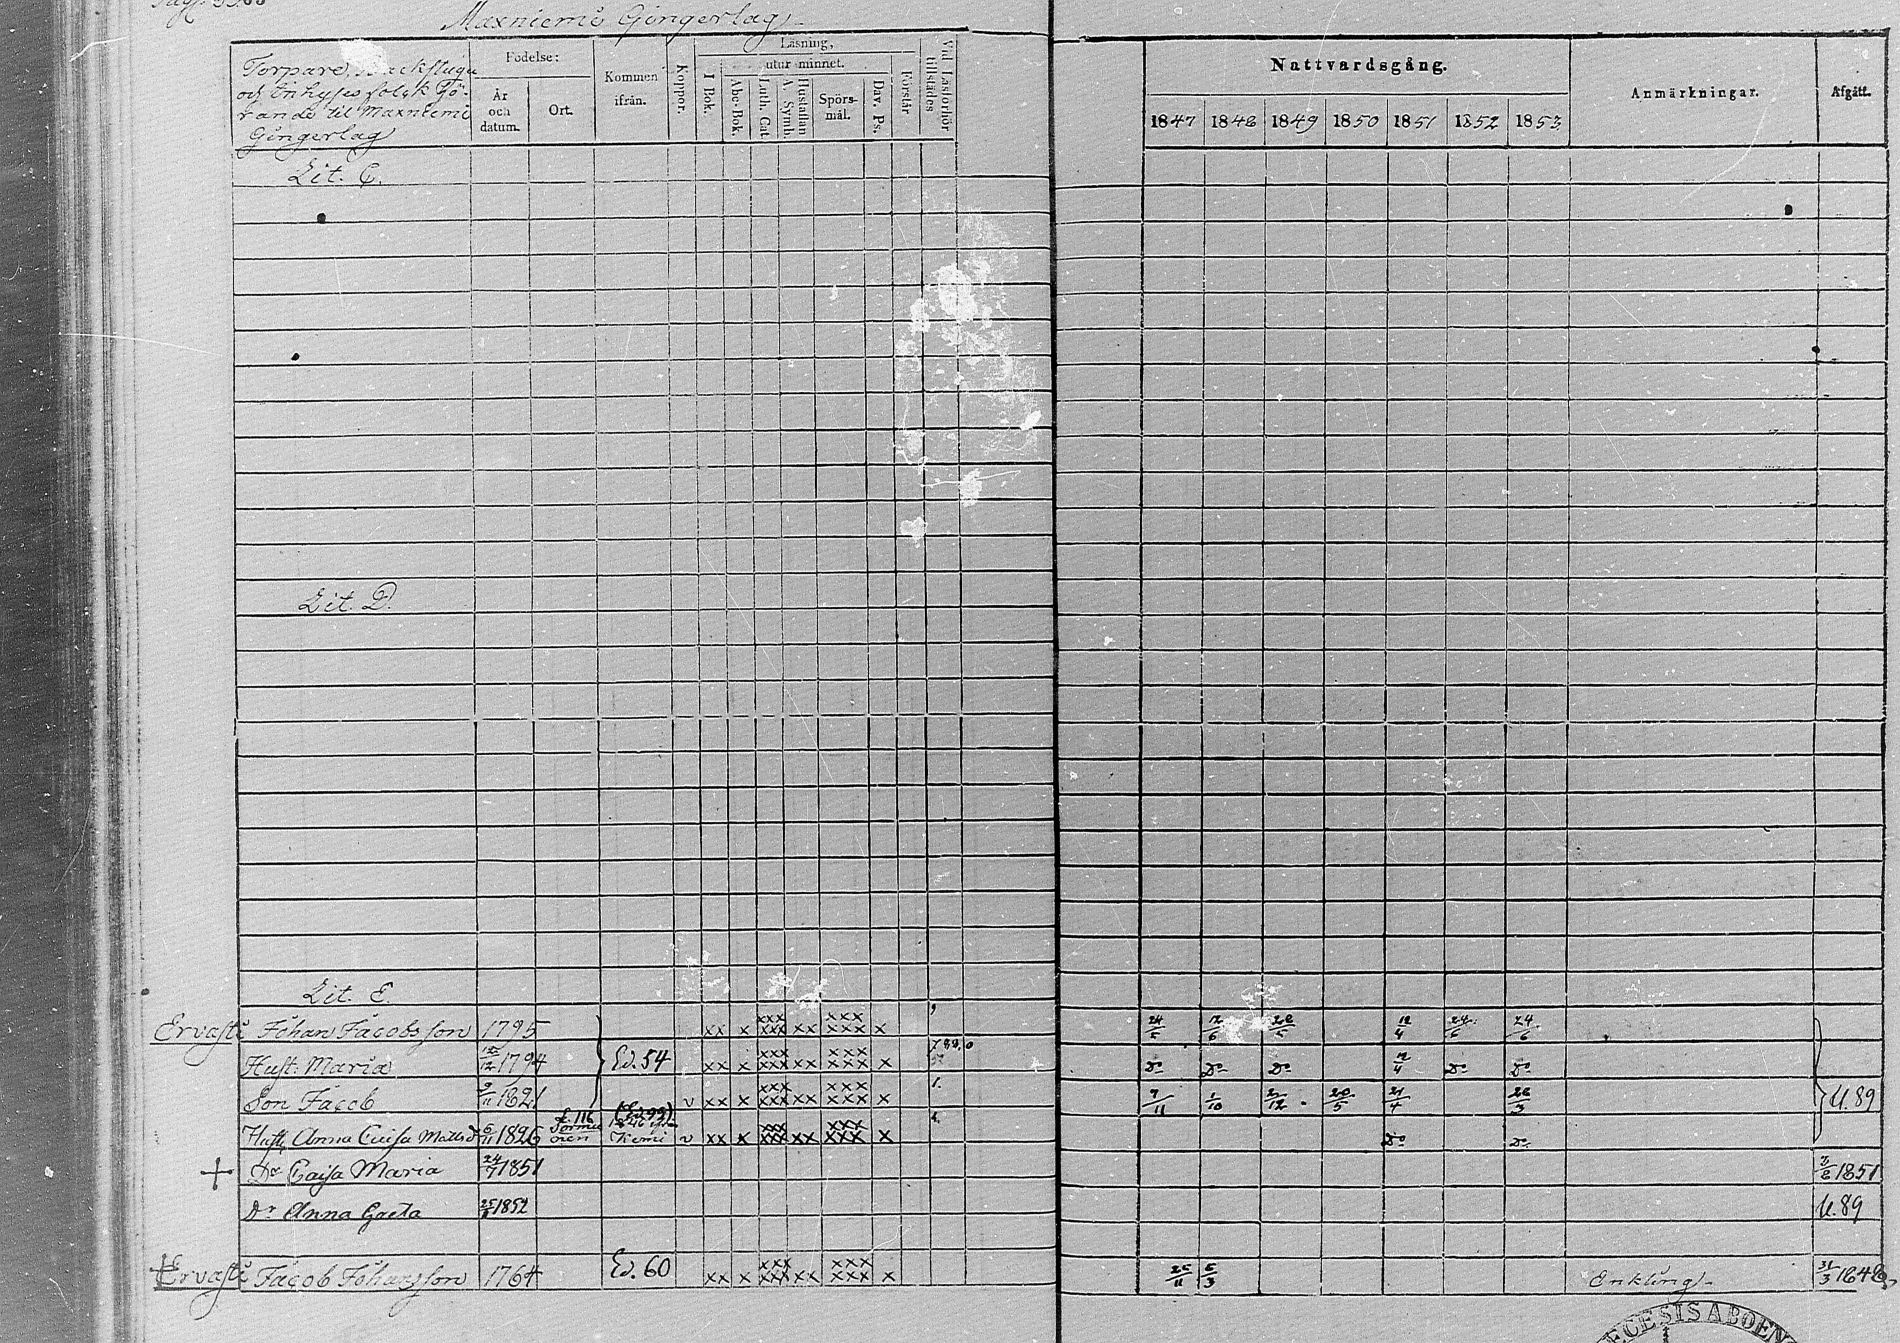 Maxniemi Gingerlag
Torpare, Backstugu
och Inhyses folck hö-
rande til Maxniemi
Gingerlag
Födelse:
År
och
datum.
Ort.
Kommen
ifrån.
Koppor.
Läsning,
utur minnet.
I Bok.
Abc-Bok.
Luth. Cat.
Hustaflan
A. Symb.
Spörs-
mål.
Dav. Ps.
Förstår
Vid Läsförhör
tillstädes
Nattvardsgång.
1847 1848 1849 1850 1851 1852 1853
Anmärkningar.
Afgått.
Lit. C.
Lit. D.
Lit. E.
Ervasti Johan Jacobsson 1795 xxx xxx
xx x xxx xx xxx x 24/5 12/6 28/5 12/4 24/6 24/6
Hust. Maria 12/12 1794 Ed. 54 xxx xxx
xx x xxx xx xxx x Do Do Do 12/4 Do Do
Son Jacob 9/11 1821 v xxx xxx
xx x xxx xx xxx x 7/11 1/10 2/12 20/5 21/4 26/3 U. 89
Hust. Anna Cuisa Matsd 6/11 1826 f. 116 (Ed. 99) Kemi v xxx xxx
xx x xxx xx xxx x Do Do
Dr Caisa Maria 24/7 1851 1851
Dr Anna Greta 25/ 1852 U. 89
Ervasti Jacob Johansson 1764 Ed. 60 xxx xxx
xx x xxx xx xxx x 25/11 5/3 Enkling 31/3 1848
ECESIS ABOEN